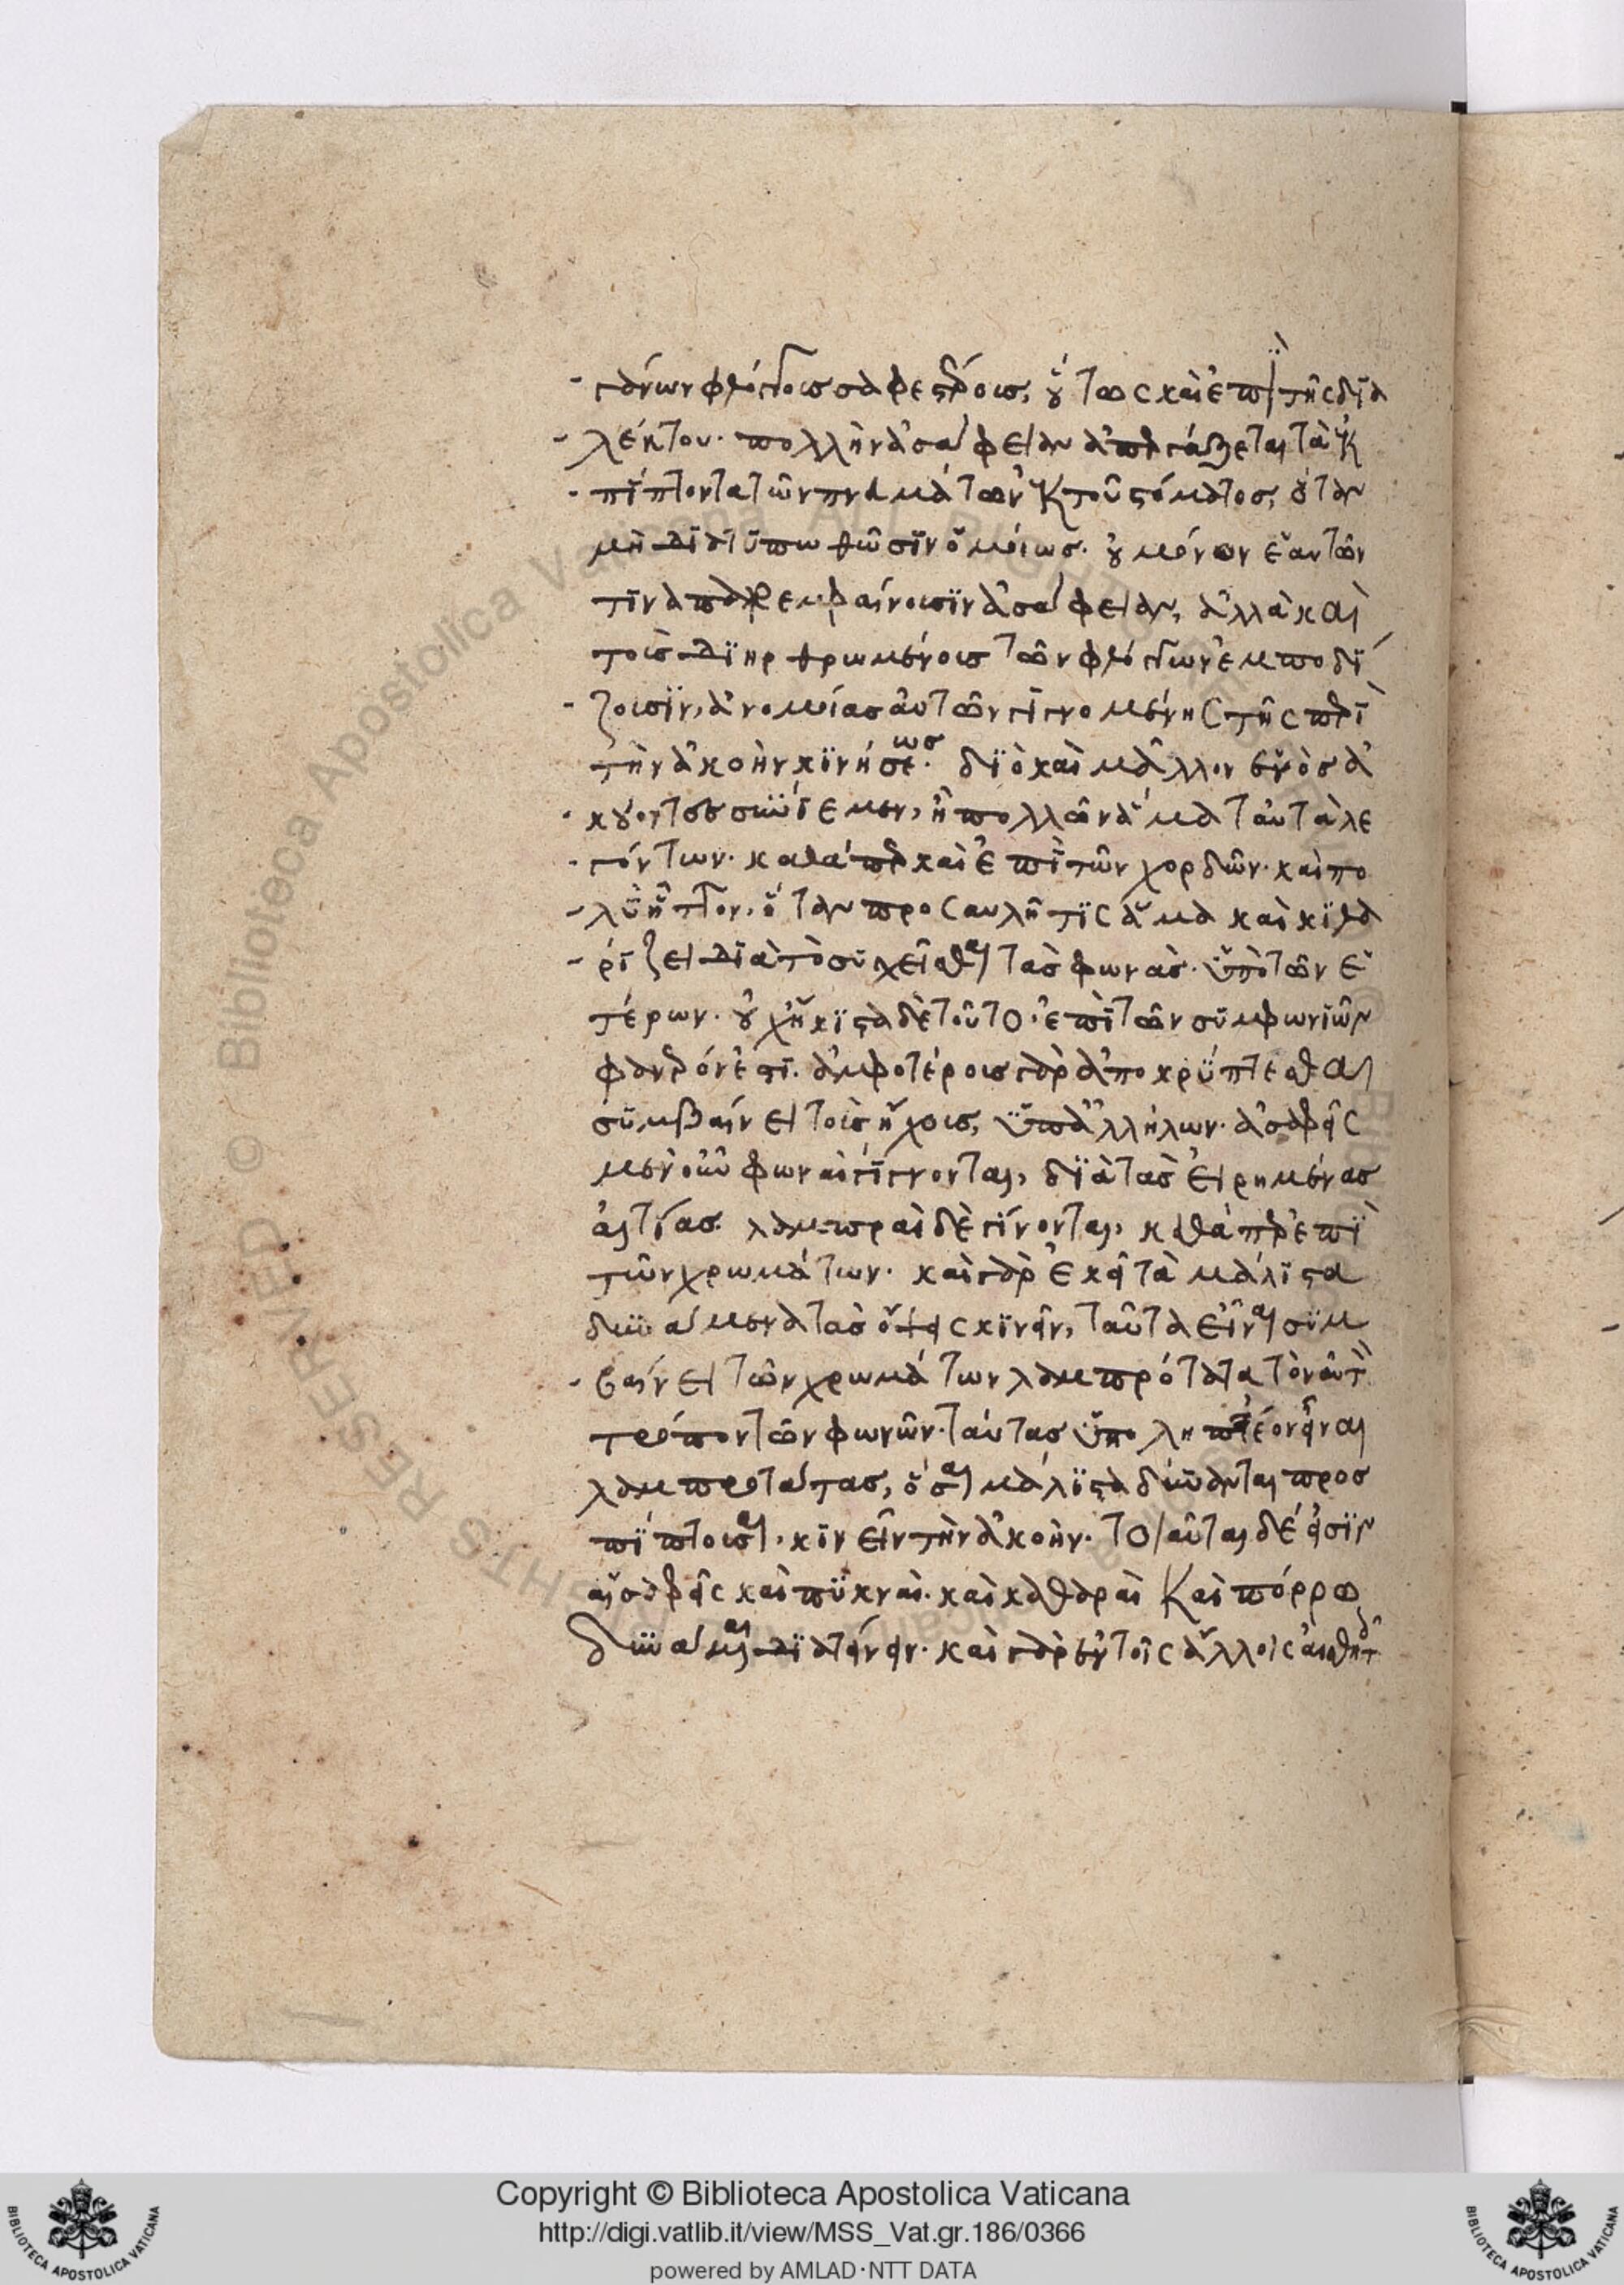 γάνων φθόγγοις σαφεστέροις, οὕτως καὶ ἐπὶ τῆς δια
λέκτου. πολλὴν ἀσάφειαν ἀπεργάζεται τὰ ἐκ
πίπτοντα τῶν πνευμάτων ἐκ τοῦ στόματος, ὅταν
μὴ διατυπωθῶσιν ὁμοίως. οὐ μόνον ἑαυτῶν
τινα παρεμφαίνουσιν ἀσάφειαν, ἀλλὰ καὶ
τοῖς διηρθρωμένοις τῶν φθόγγων ἐμποδί
ζουσιν, ἀνομοίας αὐτῶν γιγνομένης τῆς περὶ
τὴν ἀκοὴν κινήσεως. διὸ καὶ μᾶλλον ἑνὸς ἀ
κούοντες συνίεμεν, ἢ πολλῶν ἅμα ταὐτὰ λε
γόντων. καθάπερ καὶ ἐπὶ τῶν χορδῶν. καὶ πο
λὺ ἧττον, ὅταν προσαυλῇ τις ἅμα καὶ κιθα
ρίζει διὰ τὸ συγχεῖσθαι τὰς φωνὰς. ὑπὸ τῶν ἑ
τέρων. οὐχ ἥκιστα δὲ τοῦτο ἐπὶ τῶν συμφωνιῶν
φανερόν ἐστι. ἀμφοτέρους γὰρ ἀποκρύπτεσθαι
συμβαίνει τοῖς ἤχοις, ὑπ' ἀλλήλων. ἀσαφεῖς
μὲν οὖν φωναὶ γίγνονται, διὰ τὰς εἰρημένας
αἰτίας. λαμπραὶ δὲ γίνονται, καθάπερ ἐπὶ
τῶν χρωμάτων. καὶ γὰρ ἐκεῖ τὰ μάλιστα
δυνάμενα τὰς ὄψεις κινεῖν, ταῦτα εἶναι συμ
βαίνει τῶν χρωμάτων λαμπρότατα τὸν αὐτὸν
τρόπον τῶν φωνῶν. ταύτας ὑποληπτέον εἶναι
λαμπροτάτας, ὅσαι μάλιστα δύνανται προσ
πίπτουσαι κινεῖν τὴν ἀκοήν. τοιαῦται δέ εἰσιν
αἱ σαφεῖς καὶ πυκναὶ. καὶ καθαραὶ καὶ πόρρω
δυνάμεναι διατείνειν. καὶ γὰρ ἐν τοῖς ἄλλοις αἰσθητοῖς
Copyright © Biblioteca Apostolica Vaticana
http://digi.vatlib.it/view/MSS_Vat.gr.186/0366
powered by AMLAD·NTT DATA